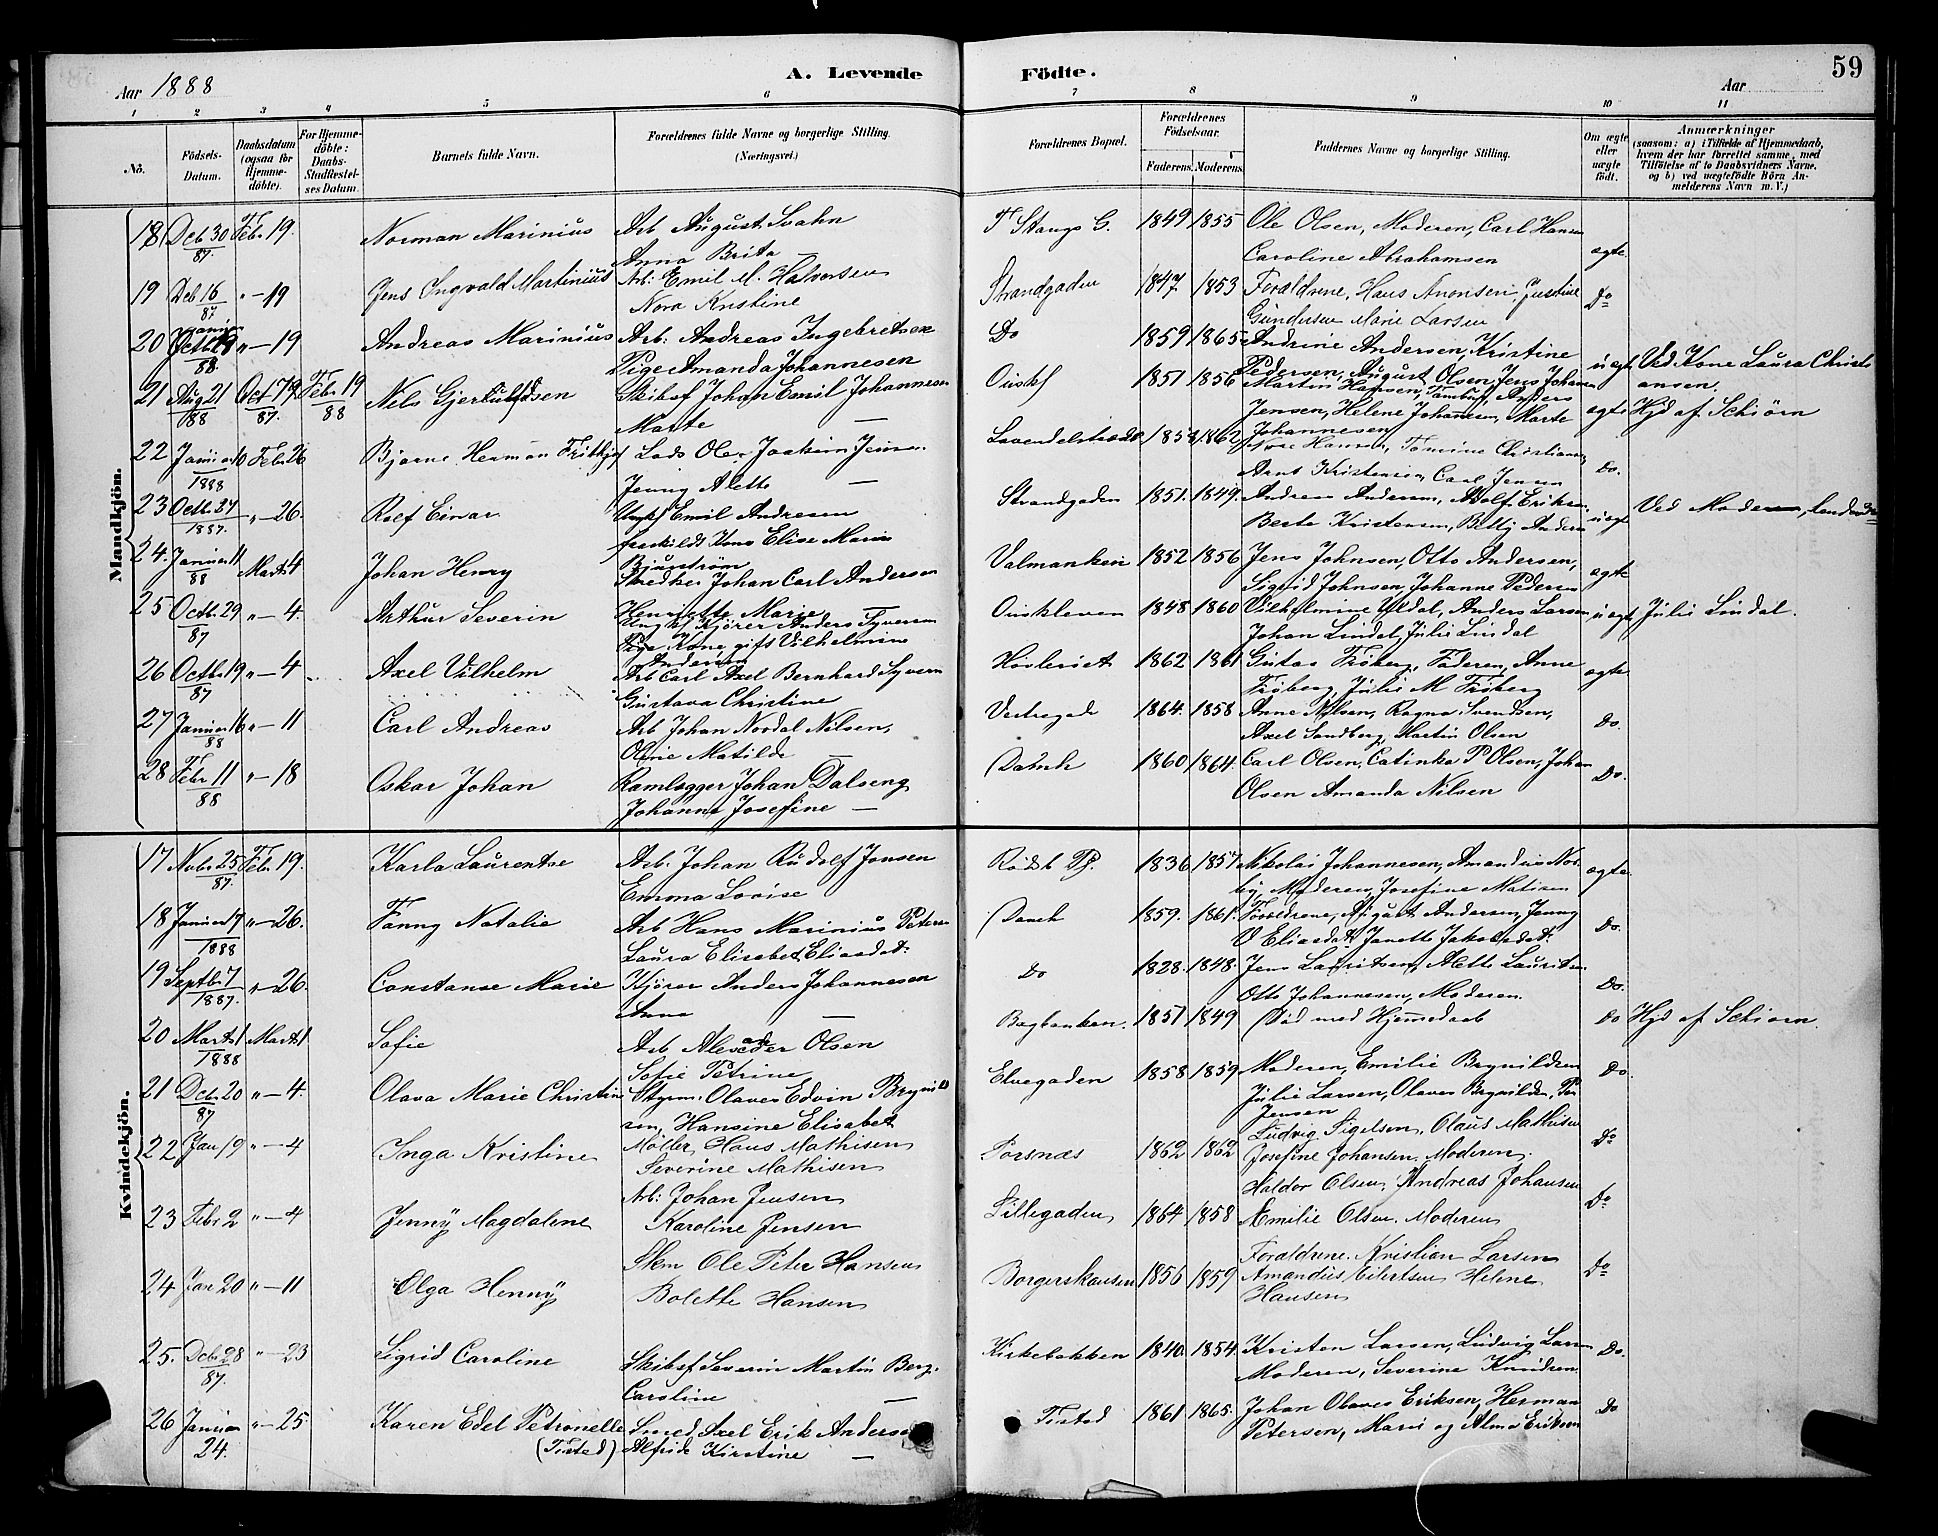 59
Aar 1888
A. Levende Födte.
Aar
1 2 3 4 5 6 7 8 9 10 11
No.
Födsels-Datum.
Daabsdatum (ogsaa for Hjemme-döbte).
For Hjemme-döbte: Daabs-Stadfæstel-ses Datum.
Barnets fulde Navn.
Forældrenes fulde Navne og borgerlige Stilling. (Næringsvei.)
Forældrenes Bopæl.
Forældrenes Födselsaar.
Faderens. Moderens.
Faddernes Navne og borgerlige Stilling.
Om ægte eller uægte födt.
Anmærkninger
(saasom: a) i Tilfælde af Hjemmedaab, hvem der har forrettet samme, med Tilföielse af to Daabsvidners Navne, og b) ved uægtefödte Börn An-melderens Navn m. V.)
Mandkjön.
18 Dcb 30 87. Febr 19. Norman Marinius Arb August Svahn T Stangs G. 1849 1855 Ole Olsen, Moderen, Carl Hansen
Anna Brita — Caroline Abrahamsen ægte
19 Dcb 16 87 " — 19 Jens Ingvald Martinius Arb: Emil M. Halvorsen Strandgaden 1847 1853 Forældrene, Hans Anonsen, Justine Do
Nora Kristine Gundersen Marie Larsen
20 88 " — 19 Andreas Marinius Arb: Andreas Ingebretsen Do 1859 1865 Andrine Andersen, Kristine
Pige Amanda Johannesen Pedersen, August Olsen, Jens Johansen uægte Ved Kone Laura Christi
ansen.
21 Aug 21 88 Oct 19 87. Febr 19 88 Nils Gjerlufsen Skibsf Johan Emil Johannesen 1851 1856 Martin Hansen, Anders
Marte — Jensen, Helene Johannesen, Marte Johannesen ægte Hjd af Schiørn
22 Januar 10 1888 Febr 26 Bjarne Herman Fritthjof Lods Ole Joakim Jensen Lavendelstræde 1858 1862 Hansen, Tomine Christiansen
Jenny Alette — Arnt Kristensen, Carl Jensen Do.
23 Octb. 27 1887. " — 26. Rolf Einar Ungk Emil Andresen Strandgaden 1851. 1849. Andreas Andersen, Adolf Eriksen
fraskildt Kone Elise Marie Bjurstrøm Berte Kristensen, Betty Andersen uægte Ved Moderen,
24. Januar 11 88 Marts 4 Johan Henry Skrædder Johan Carl Andersen Valmankein 1852 1856 Jens Johnsen, Otto Andersen,
Henriette Marie — Sigrid Johnsen, Johanne Pedersen ægte
25 Octb. 29 87 " — 4. Arthur Severin Ungk Kjører Anders Syversen Ouiskleven 1848 1860 Vilhelmine Uldal, Anders Larsen uægt Julie Lindal.
Kone gift Vilhelmine Andersen Johan Lindal, Julie Lindal
26 Octb 19 87 " — 4 Axel Vilhelm Arb Carl Axel Bernhard Syversen Høvleriet 1862 1861 Gustav Frøberg, Faderen, Anne
Gustava Christine Frøberg, Julie M Frøberg ægte
27 Januar 16 88 " — 11 Carl Andreas Arb Johan Nordal Nilsen, Vestregade 1864. 1858 Anne Nilsen, Ragna Svendsen,
Oline Matilde — Axel Sandberg, Martin Olsen Do.
28 Febr 11 88 " — 18 Oskar Johan Ramlægger Johan Dalseng Damh 1860 1864. Carl Olsen, Catinka P Olsen, Johan
Johanne Josefine — Olsen Amanda Nilsen Do.
Kvindekjön.
17 Nvbr 25 87. Febr 19. Karla Laurentse Arb. Johan Rudolf Jonsen 1836 1857 Nikolai Johannesen, Amandus Nor-
Emma Lovise by, Moderen, Josefine Matisen ægte
18 Januar 17 1888 " — 26. Fanny Natalie Arb Hans Marinius Petersen Damh 1859. 1861. Forældrene, August Andersen, Jenny
Laura Elisabet Eliasdat: V Eliasdat, Janette Jakobsdat. Do.
19 Septb. 7 1887. " — 26. Constanse Marie Kjører Anders Johannesen Do 1828. 1848. Jens Lauritsen, Alette Lauritsen
Anna — Otto Johannesen, Moderen. Do.
20 Marts 1 1888 Marts 1 Sofie Arb Alexander Olsen Bagbanken. 1851 1849 Død med Hjemmedaab Do Hjd af Schiørn.
Sofie Petrine
21 Dcb. 20 87 " — 4. Olava Marie Christine Styrm: Olaves Edvin Brynild Elvegaden 1858 1859 Moderen, Emilie Brynildsen Do.
sen, Hansine Elisabet Julie Larsen, Olaves Brynildsen, P Jensen
22 Jan 19 " — 4 Inga Kristine Møller Hans Mathisen Torsnæs 1862 1862 Ludvig Sigelsen, Olaus Mathisen Do
Severine Mathisen Josefine Johansen. Moderen.
23 Febr 2 " — 4 Jenny Magdalene Arb: Johan Jensen Lillegaden 1864 1858 Haldor Olsen, Andreas Johansen Do
Karoline Jensen Emilie Olsen. Moderen
24 Jan 20 " — 11 Olga Henny Skm Ole Peter Hansen Borgerskansen 1856 1859 Forældrene. Kristian Larsen Do
Bolette Hansen Amandus Eilertsen Helene Hansen
25. Dcb. 28 87. " — 23 Sigrid Caroline Skibsf Severin Martin Berg. Kirkebakken 1840. 1854. Kristen Larsen, Ludvig Larsen Do.
Caroline — Moderen, Severine Knudsen
26 Januar 24. " — 25 Karen Edel Petronelle Smed Axel Erik Andersen Tistad 1861 1865. Johan Olaves Eriksen, Herman Do
(Tisted) Alfride Kirstine — Petersen, Marie og Alma Eriksen